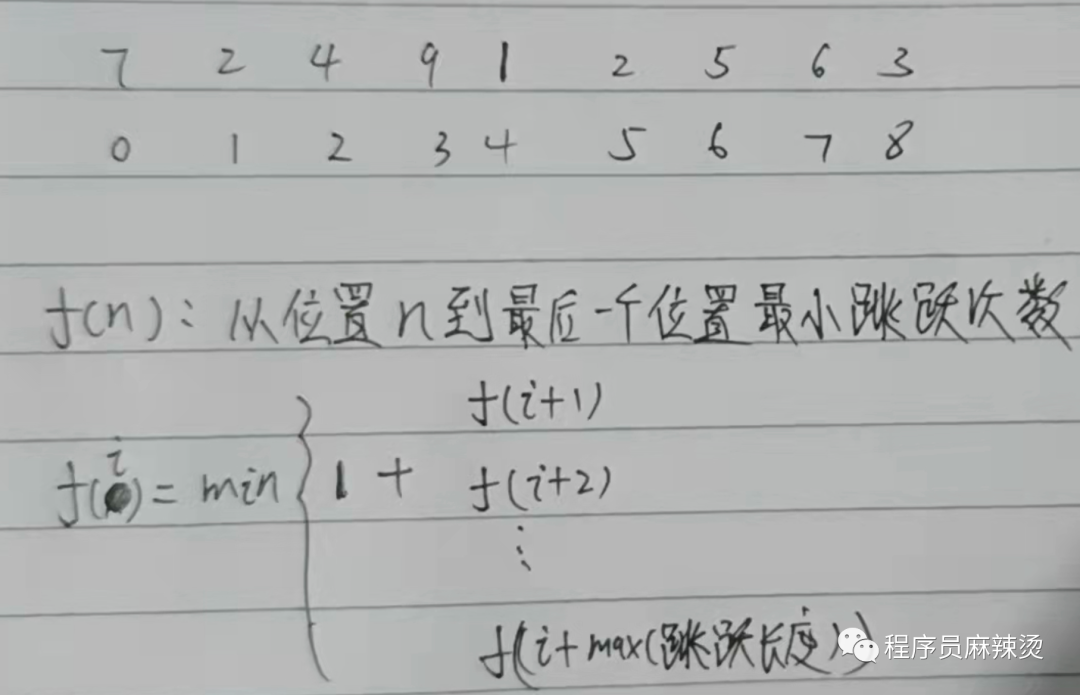 7 2 4 9 1 2 5 6 3
0 1 2 3 4 5 6 7 8
f(n): 从位置n到最后一个位置最小跳跃次数
f(i+1)
f(i) = min { 1 + f(i+2)
⋮
f(i+max(跳跃长度))
程序员麻辣烫